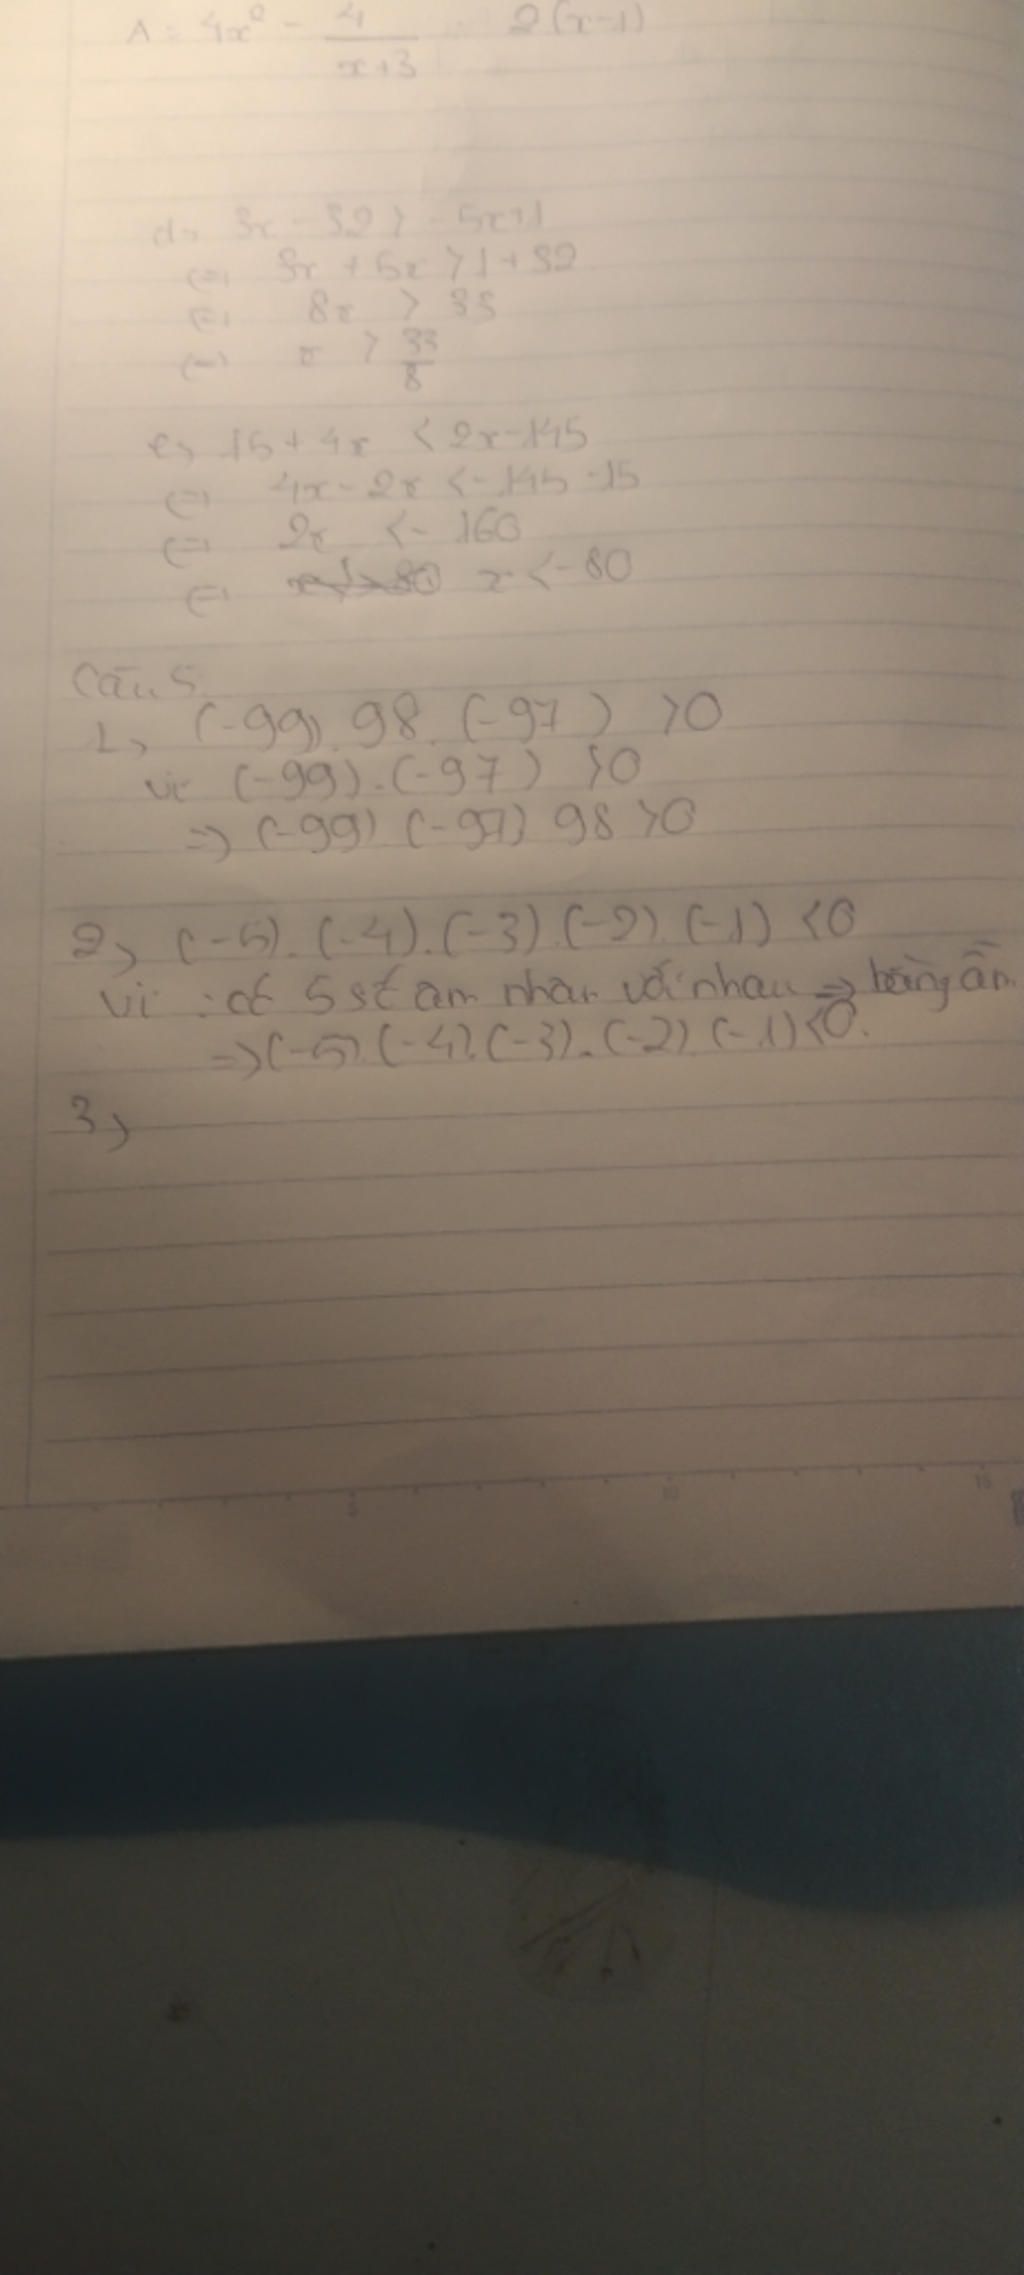 A = 4x² - 4/(x+3) 2(x-1)
d, 3x - 32 > -5x+1
(=) 3x + 5x > 1 + 32
(=) 8x > 33
(=) x > 33/8
e, 15 + 4x < 2x-145
(=) 4x - 2x < -145 -15
(=) 2x < - 160
(=) x < -80
Câu 5
1, (-99). 98. (-97) >0
vì (-99).(-97) >0
=> (-99) (-97) 98 >0
2, (-5).(-4).(-3).(-2).(-1) <0
vì : có 5 số âm nhân với nhau => bằng âm
=> (-5).(-4).(-3).(-2).(-1) <0.
3,
5 10 15